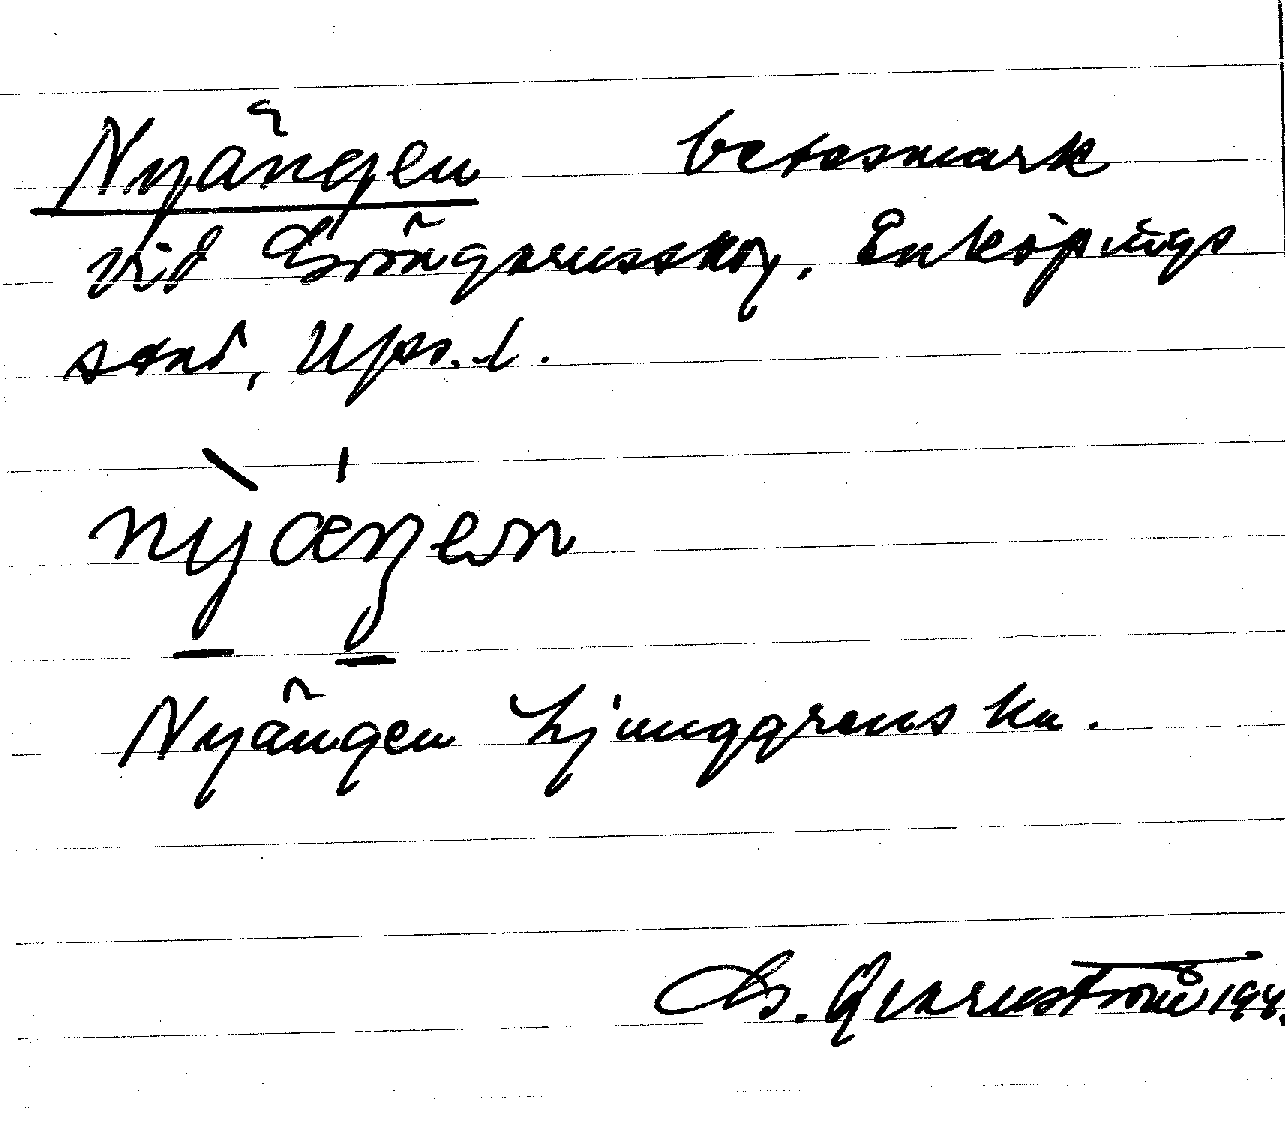 Nyängen betesmark
vid Gröngarnsskog, Enköpings
stad, Ups. l.
nyæŋen
Nyängen Ljunggrens ka.
G. Qvarnström 194